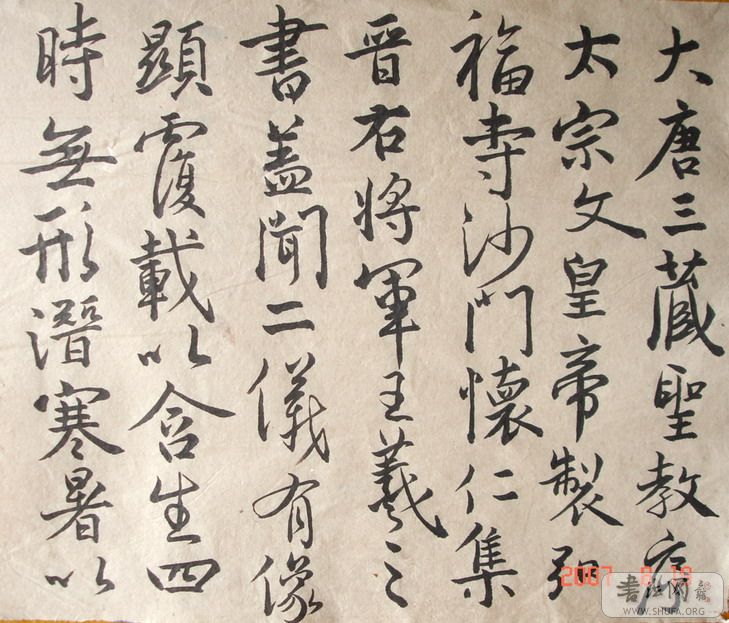 大唐三蔵聖教序
太宗文皇帝製弘
福寺沙門懷仁集
晉右將軍王羲之
書蓋聞二儀有像
顯覆載以含生四
時無形潛寒暑以
2007 8 19
書法网
WWW.SHUFA.ORG